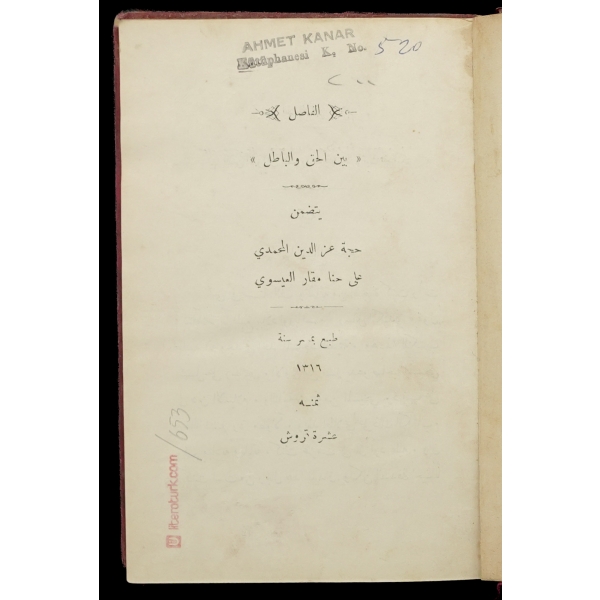 AHMET KANAR
Kütüphanesi K. No. 520
الفاصل
« بين الحق والباطل »
يتضمن
حجة عز الدين المحمدي
على حنا مقار العيسوي
طبع بمصر سنة
١٣١٦
ثمنه
عشرة قروش
/653
literaturk.com